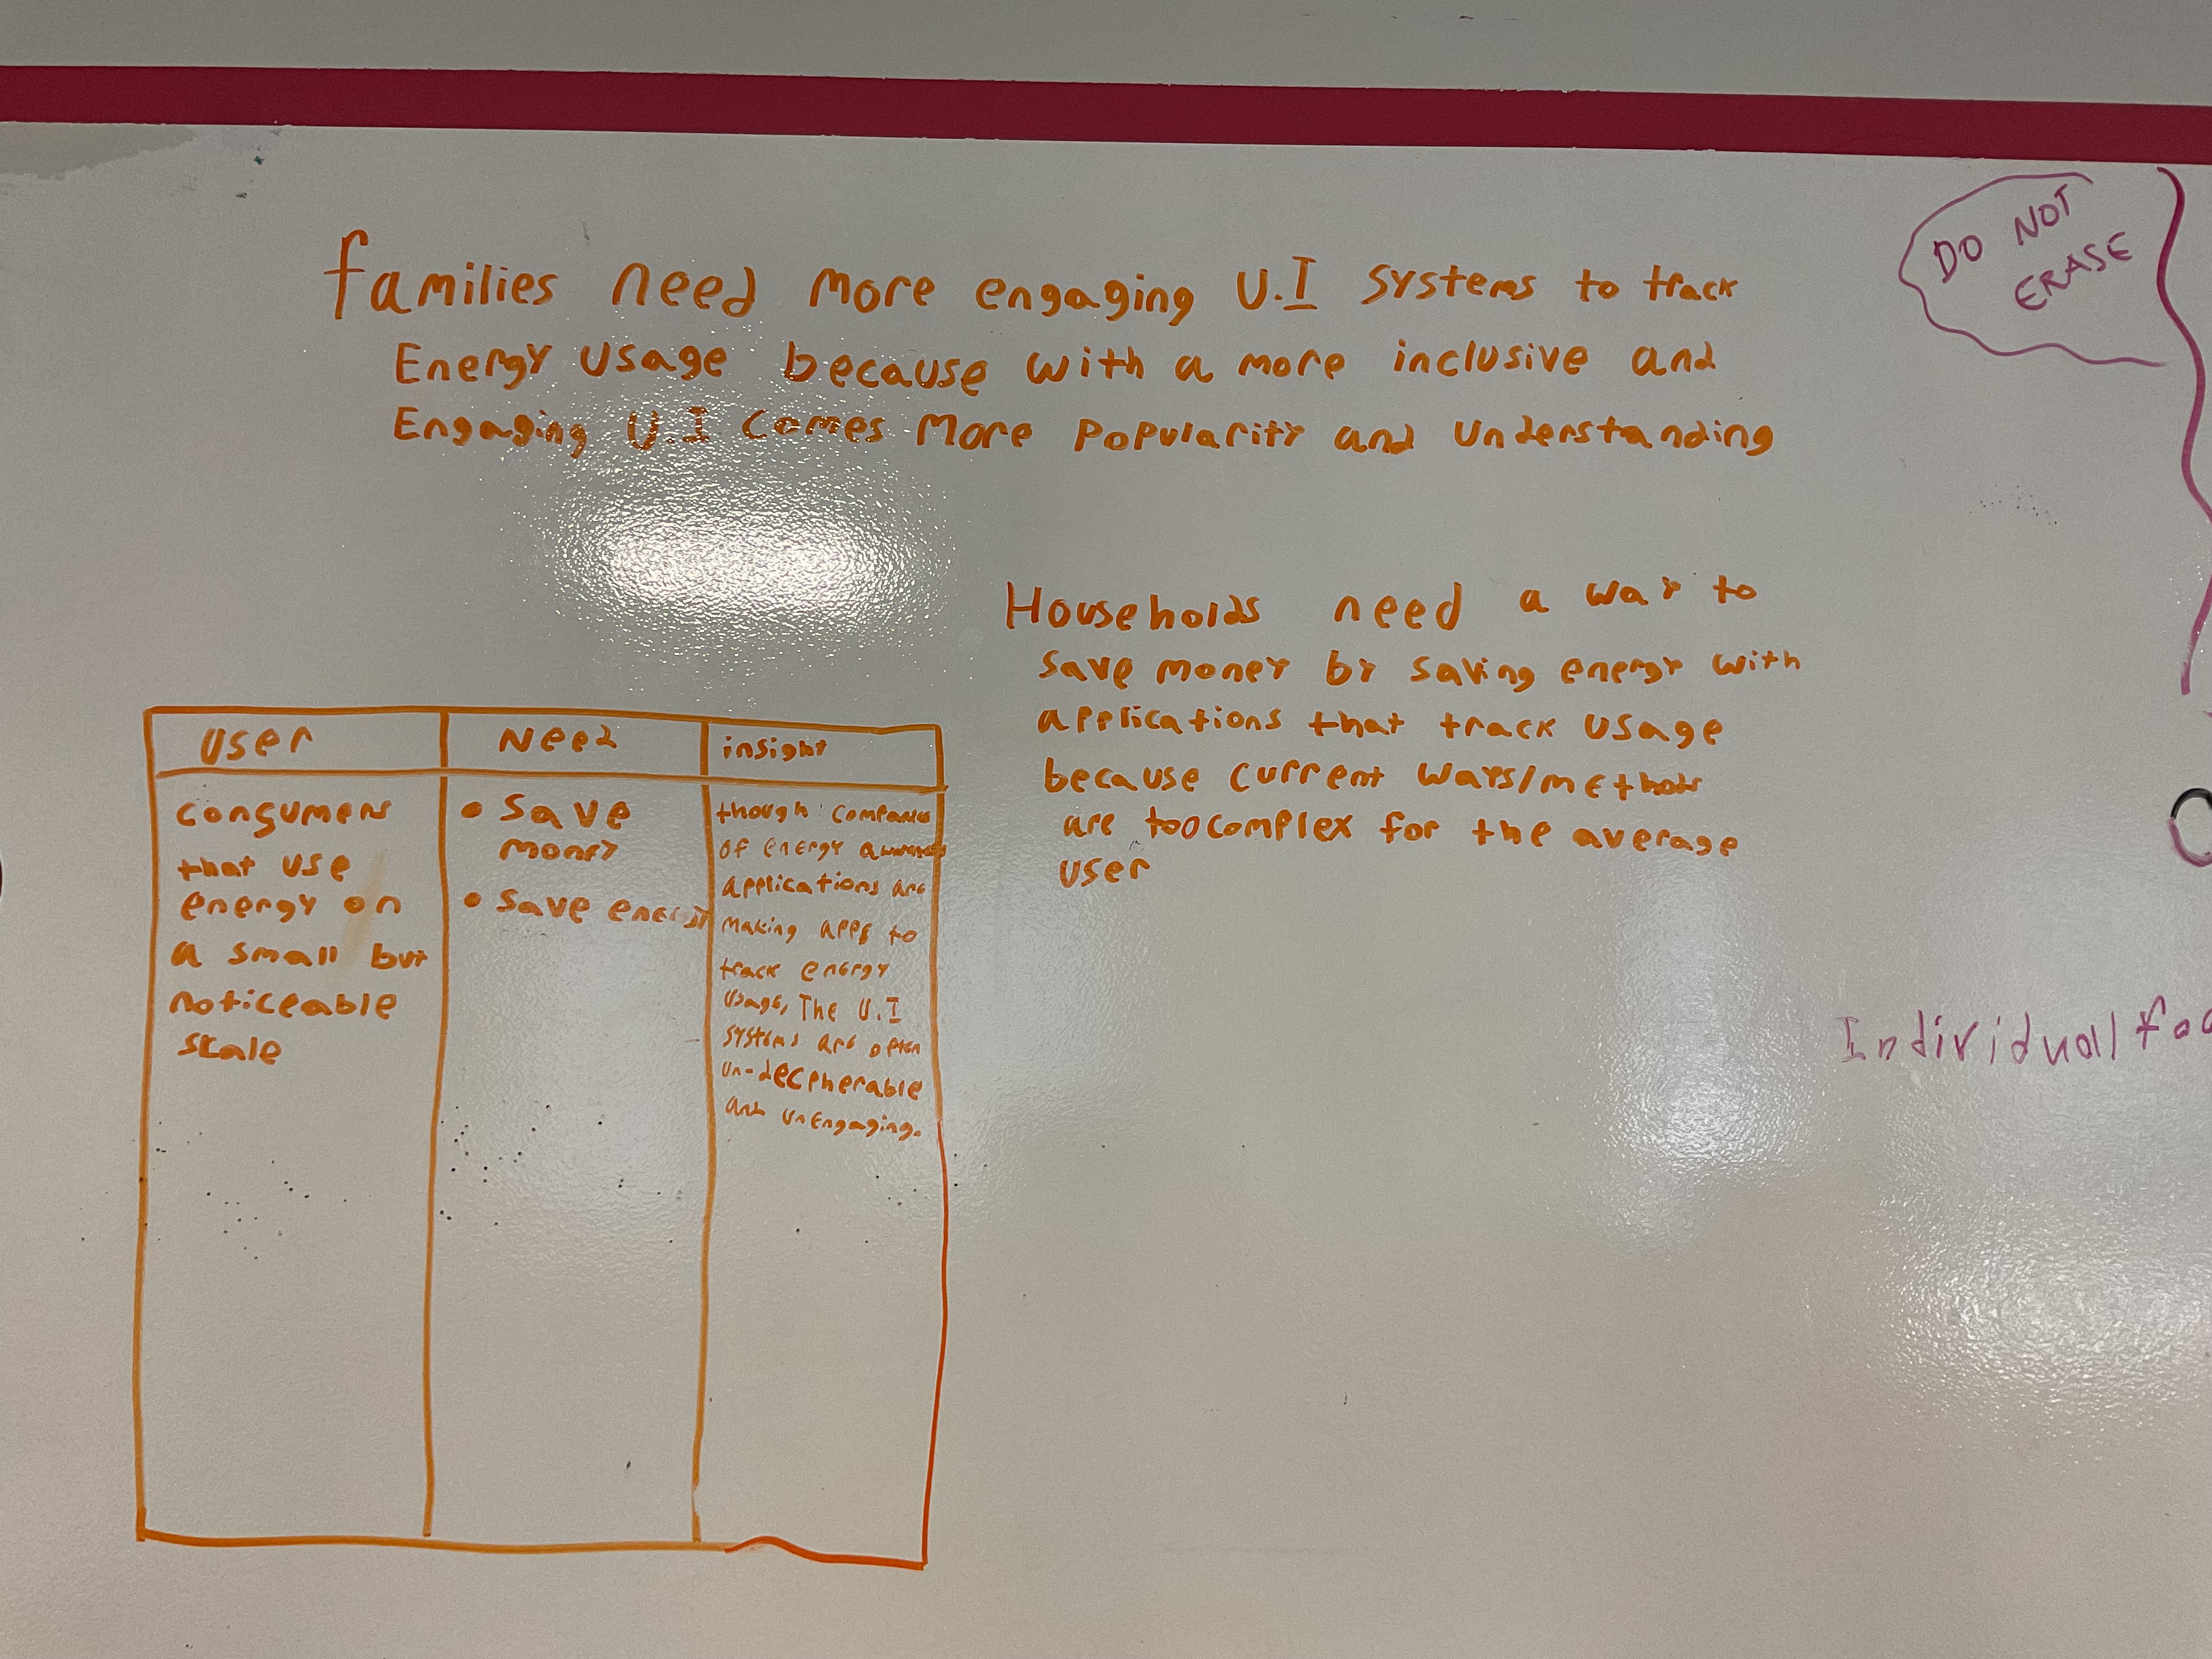 families need more engaging U.I systems to track
Energy usage because with a more inclusive and
Engaging U.I comes more popularity and understanding
DO NOT
ERASE
Households need a way to
save money by saving energy with
applications that track usage
because current ways/methods
are too complex for the average
user
user
Need
insight
consumers
that use
energy on
a small but
noticeable
scale
• Save
money
• Save energy
though companies
of energy awareness
applications are
making apps to
track energy
usage, The U.I
systems are often
un-decpherable
and unengaging.
Individual